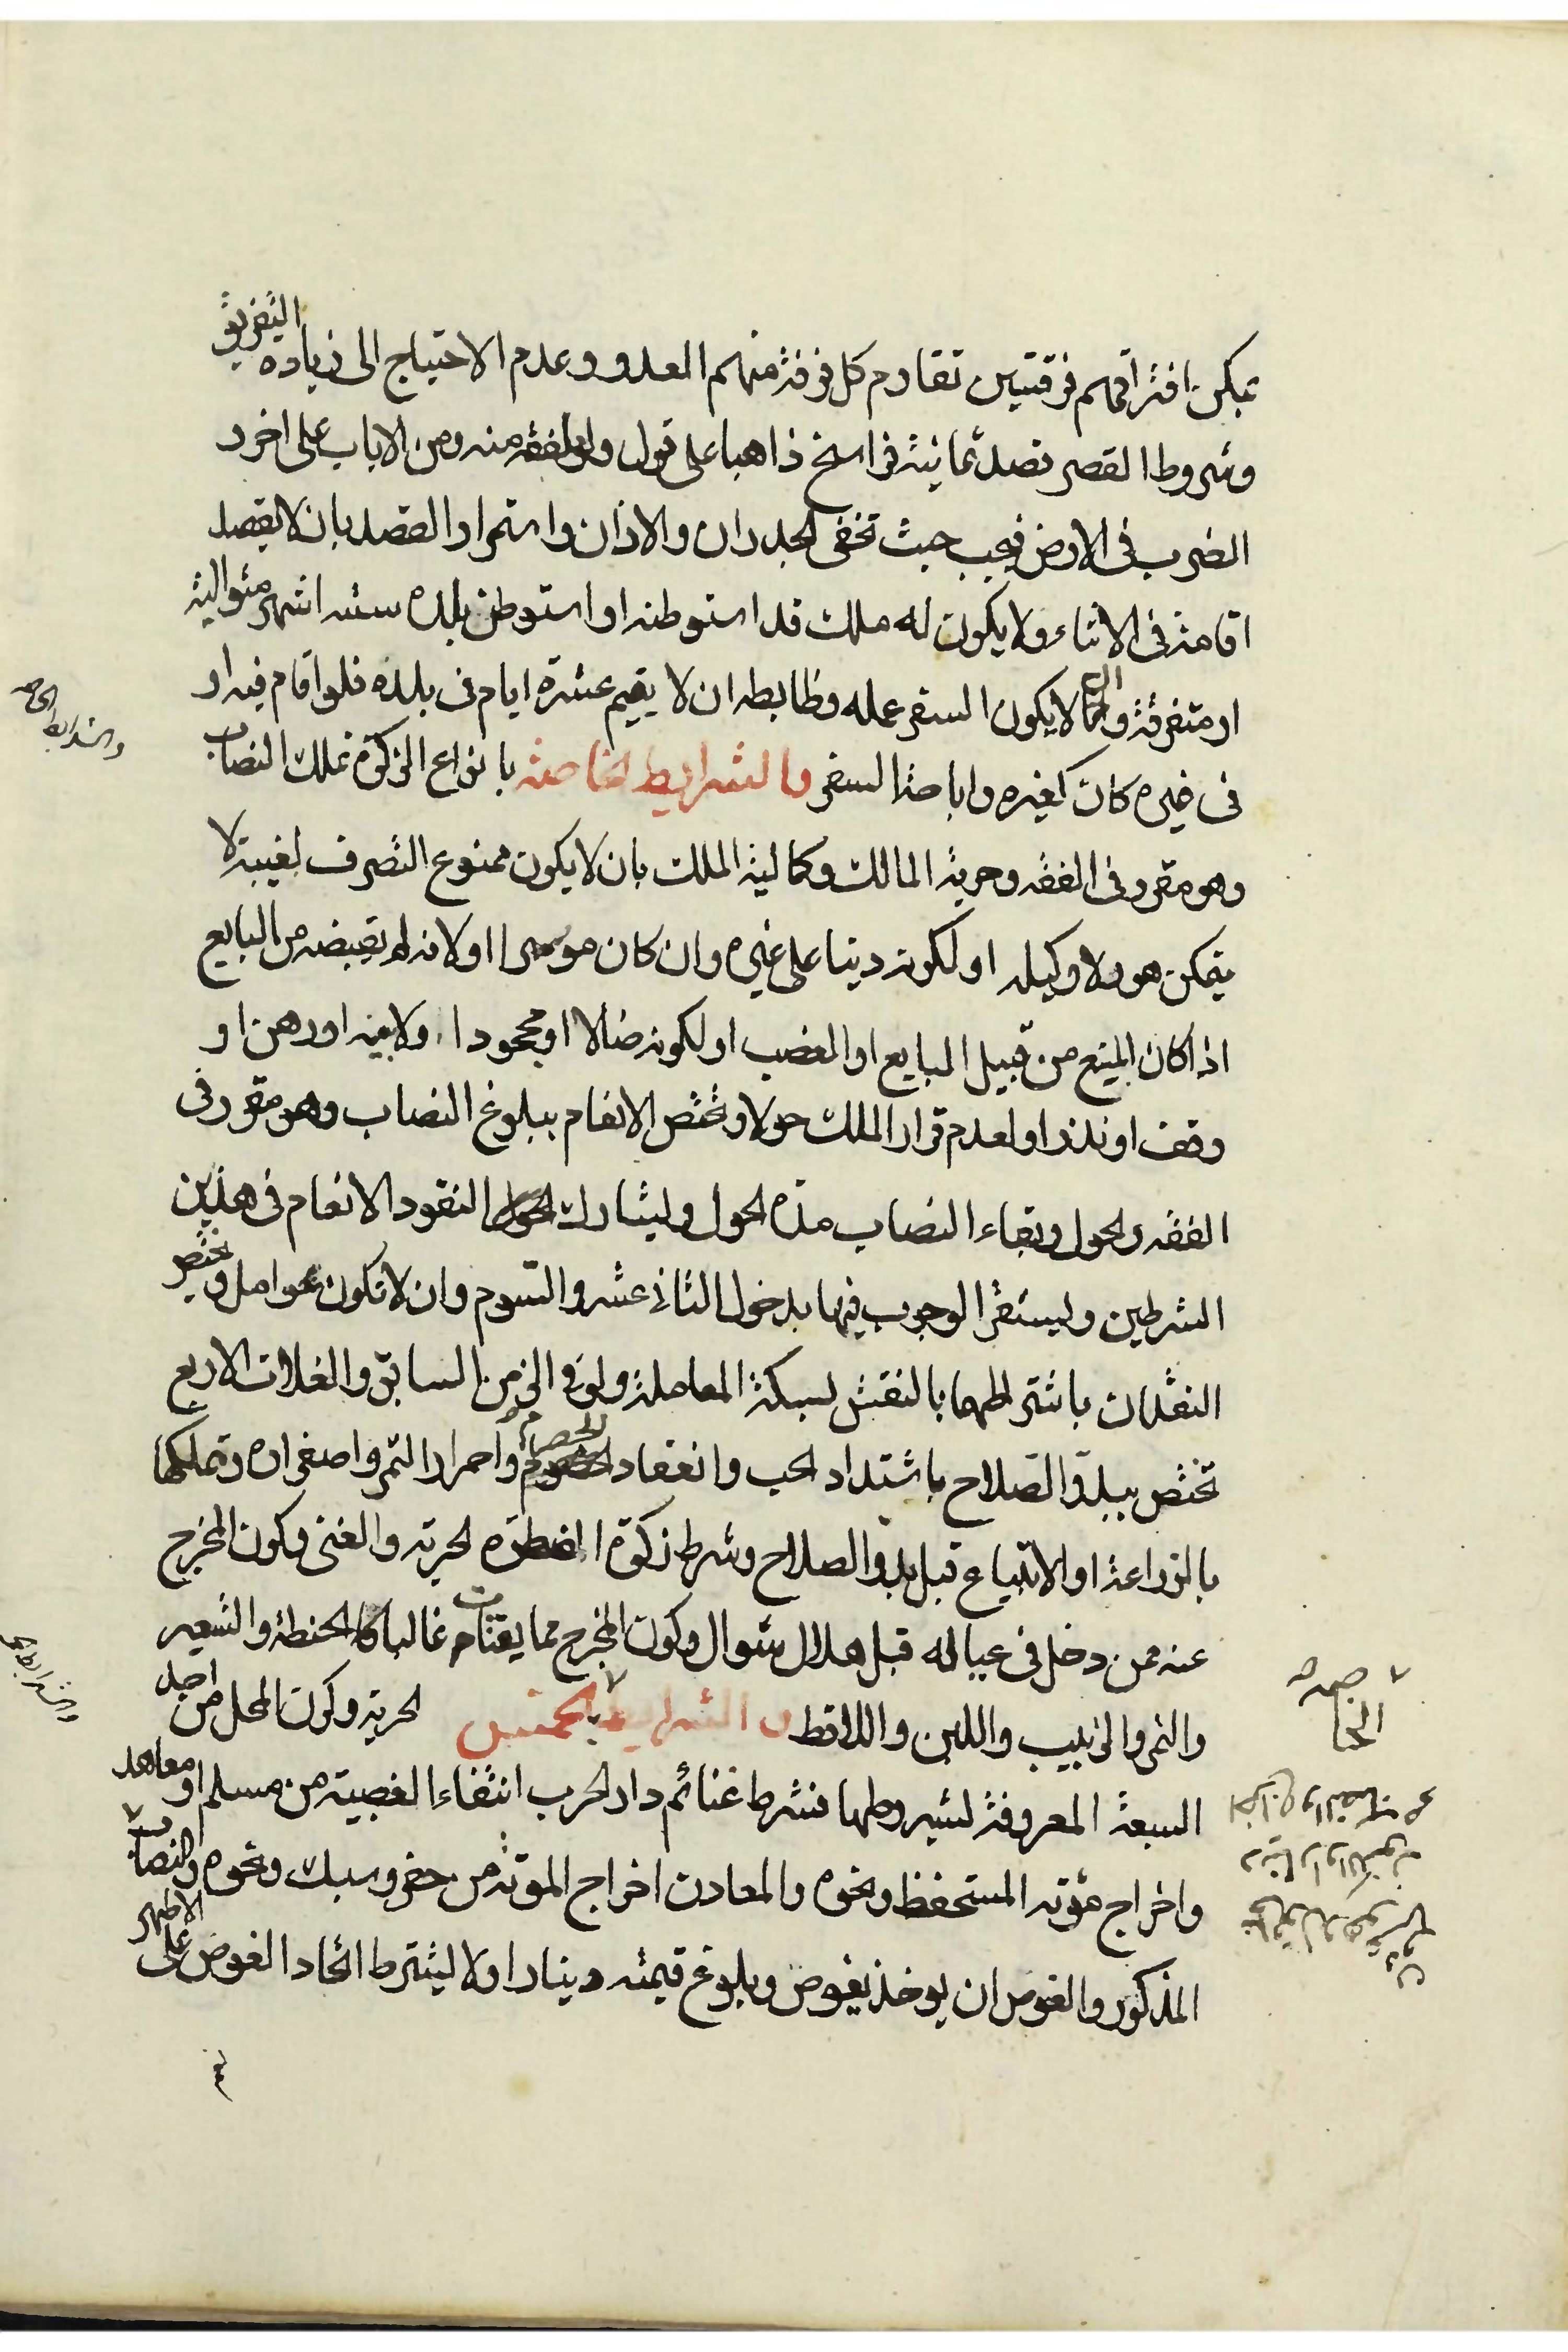 يمكن افتراقهم فرقتين تقاوم كل فرقة منهم العدو وعدم الاحتياج الى زيادة التفريق
وشروط القصر قصد ثمانية فراسخ ذاهبا على قول ولو ملفقة منه ومن الاياب على اخر و
الضرب فى الارض فيجب حيث تخفى الجدران والاذان واستمرار القصد بان لا يقصد
اقامة فى الاثناء ولا يكون له ملك قد استوطنه او استوطن بلده ستة اشهر متوالية
او متفرقة وان لا يكون السفر عمله وظابطه ان لا يقيم عشرة ايام فى بلده فلو اقام فيه او
فى غيره كان كغيره واباحة السفر والشرايط الخاصة بانواع الزكوة تملك النصاب
وهو مقرر فى الفقه وحرية المالك وكمالية الملك بان لا يكون ممنوع التصرف لغيبة لا
يتمكن هو ولا وكيله او لكونه دينا على غيره وان كان موسرا او لانه لم يقبضه من البايع
اذا كان المنع من قبيل البايع او الغصب او لكونه ضالا او مجحودا ولا بينة او رهن او
وقف او نذر او لعدم قرار الملك حولا وتختص الانعام ببلوغ النصاب وهو مقرر فى
الفقه والحول وبقاء النصاب مدة الحول وليشارك النقود الانعام فى هذين
الشرطين وليستقر الوجوب فيها بدخول الثانى عشر والسوم وان لا تكون عوامل ويختص
النقدان باشتراطهما بالنقش لسكة المعاملة ولو فى الزمن السابق والغلات الاربع
تختص ببدو الصلاح باشتداد الحب وانعقاد الحصرم واحمرار التمر واصفراره وتملكها
بالزراعة او الابتياع قبل بدو الصلاح وشرط زكوة الفطرة الحرية والغنى وكون المخرج
عنه ممن دخل فى عياله قبل هلال شوال وكون المخرج مما يقتات غالبا كالحنطة والشعير
والتمر والزبيب واللبن والاقط والشرايط بالخمس الحرية وكون المحل من اجل
السبعة المعروفة لشروطها فشرط غنائم دار الحرب انتفاء الغصبية من مسلم او معاهد
واخراج مؤنة المستحفظ ونحوه والمعادن اخراج المؤنة من حفر وسبك ونحوه والنصاب
المذكور والغوص ان يوخذ بغوص وبلوغ قيمته دينارا ولا ليشترط اتحاد الغوص على الاظهر
الخاصة